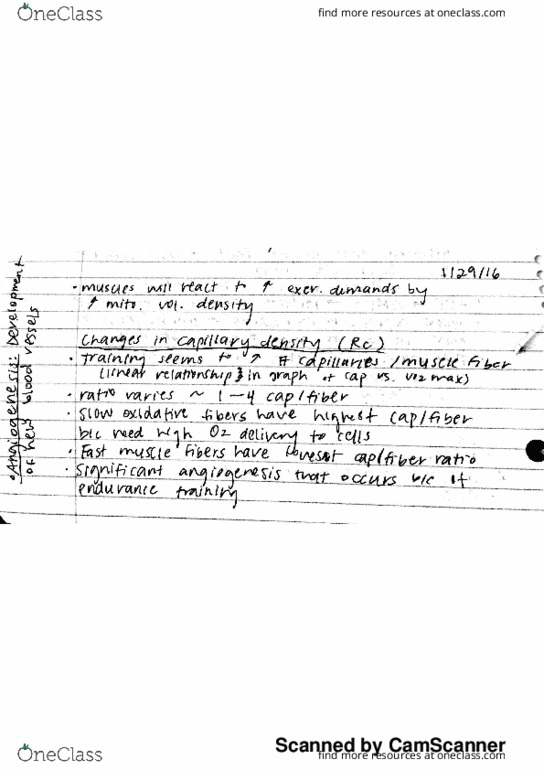 OneClass
find more resources at oneclass.com
1/29/16
• muscles will react to ↑ exer. demands by
↑ mito. vol. density
Changes in capillary density (Rc)
• Training seems to ↑ # capillaries/muscle fiber
(linear relationship in graph of cap vs. VO2 max)
• ratio varies ~ 1-4 cap/fiber
• Slow oxidative fibers have highest cap/fiber
b/c need high O2 delivery to cells
• Fast muscle fibers have lowest cap/fiber ratio
• Significant angiogenesis that occurs b/c of
endurance training
• Angiogenesis: Development
of new blood vessels
Scanned by CamScanner
OneClass
find more resources at oneclass.com